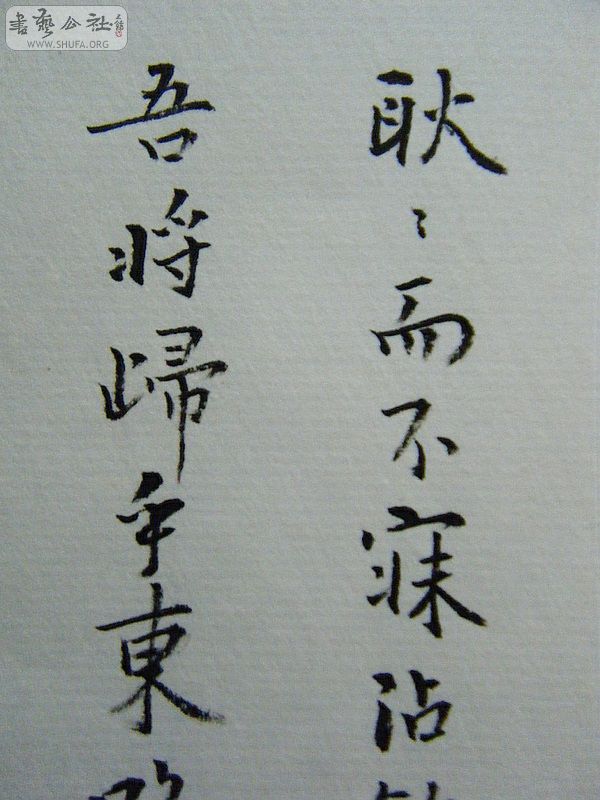 書藝公社
WWW.SHUFA.ORG
耿〻而不寐沾
吾將歸乎東